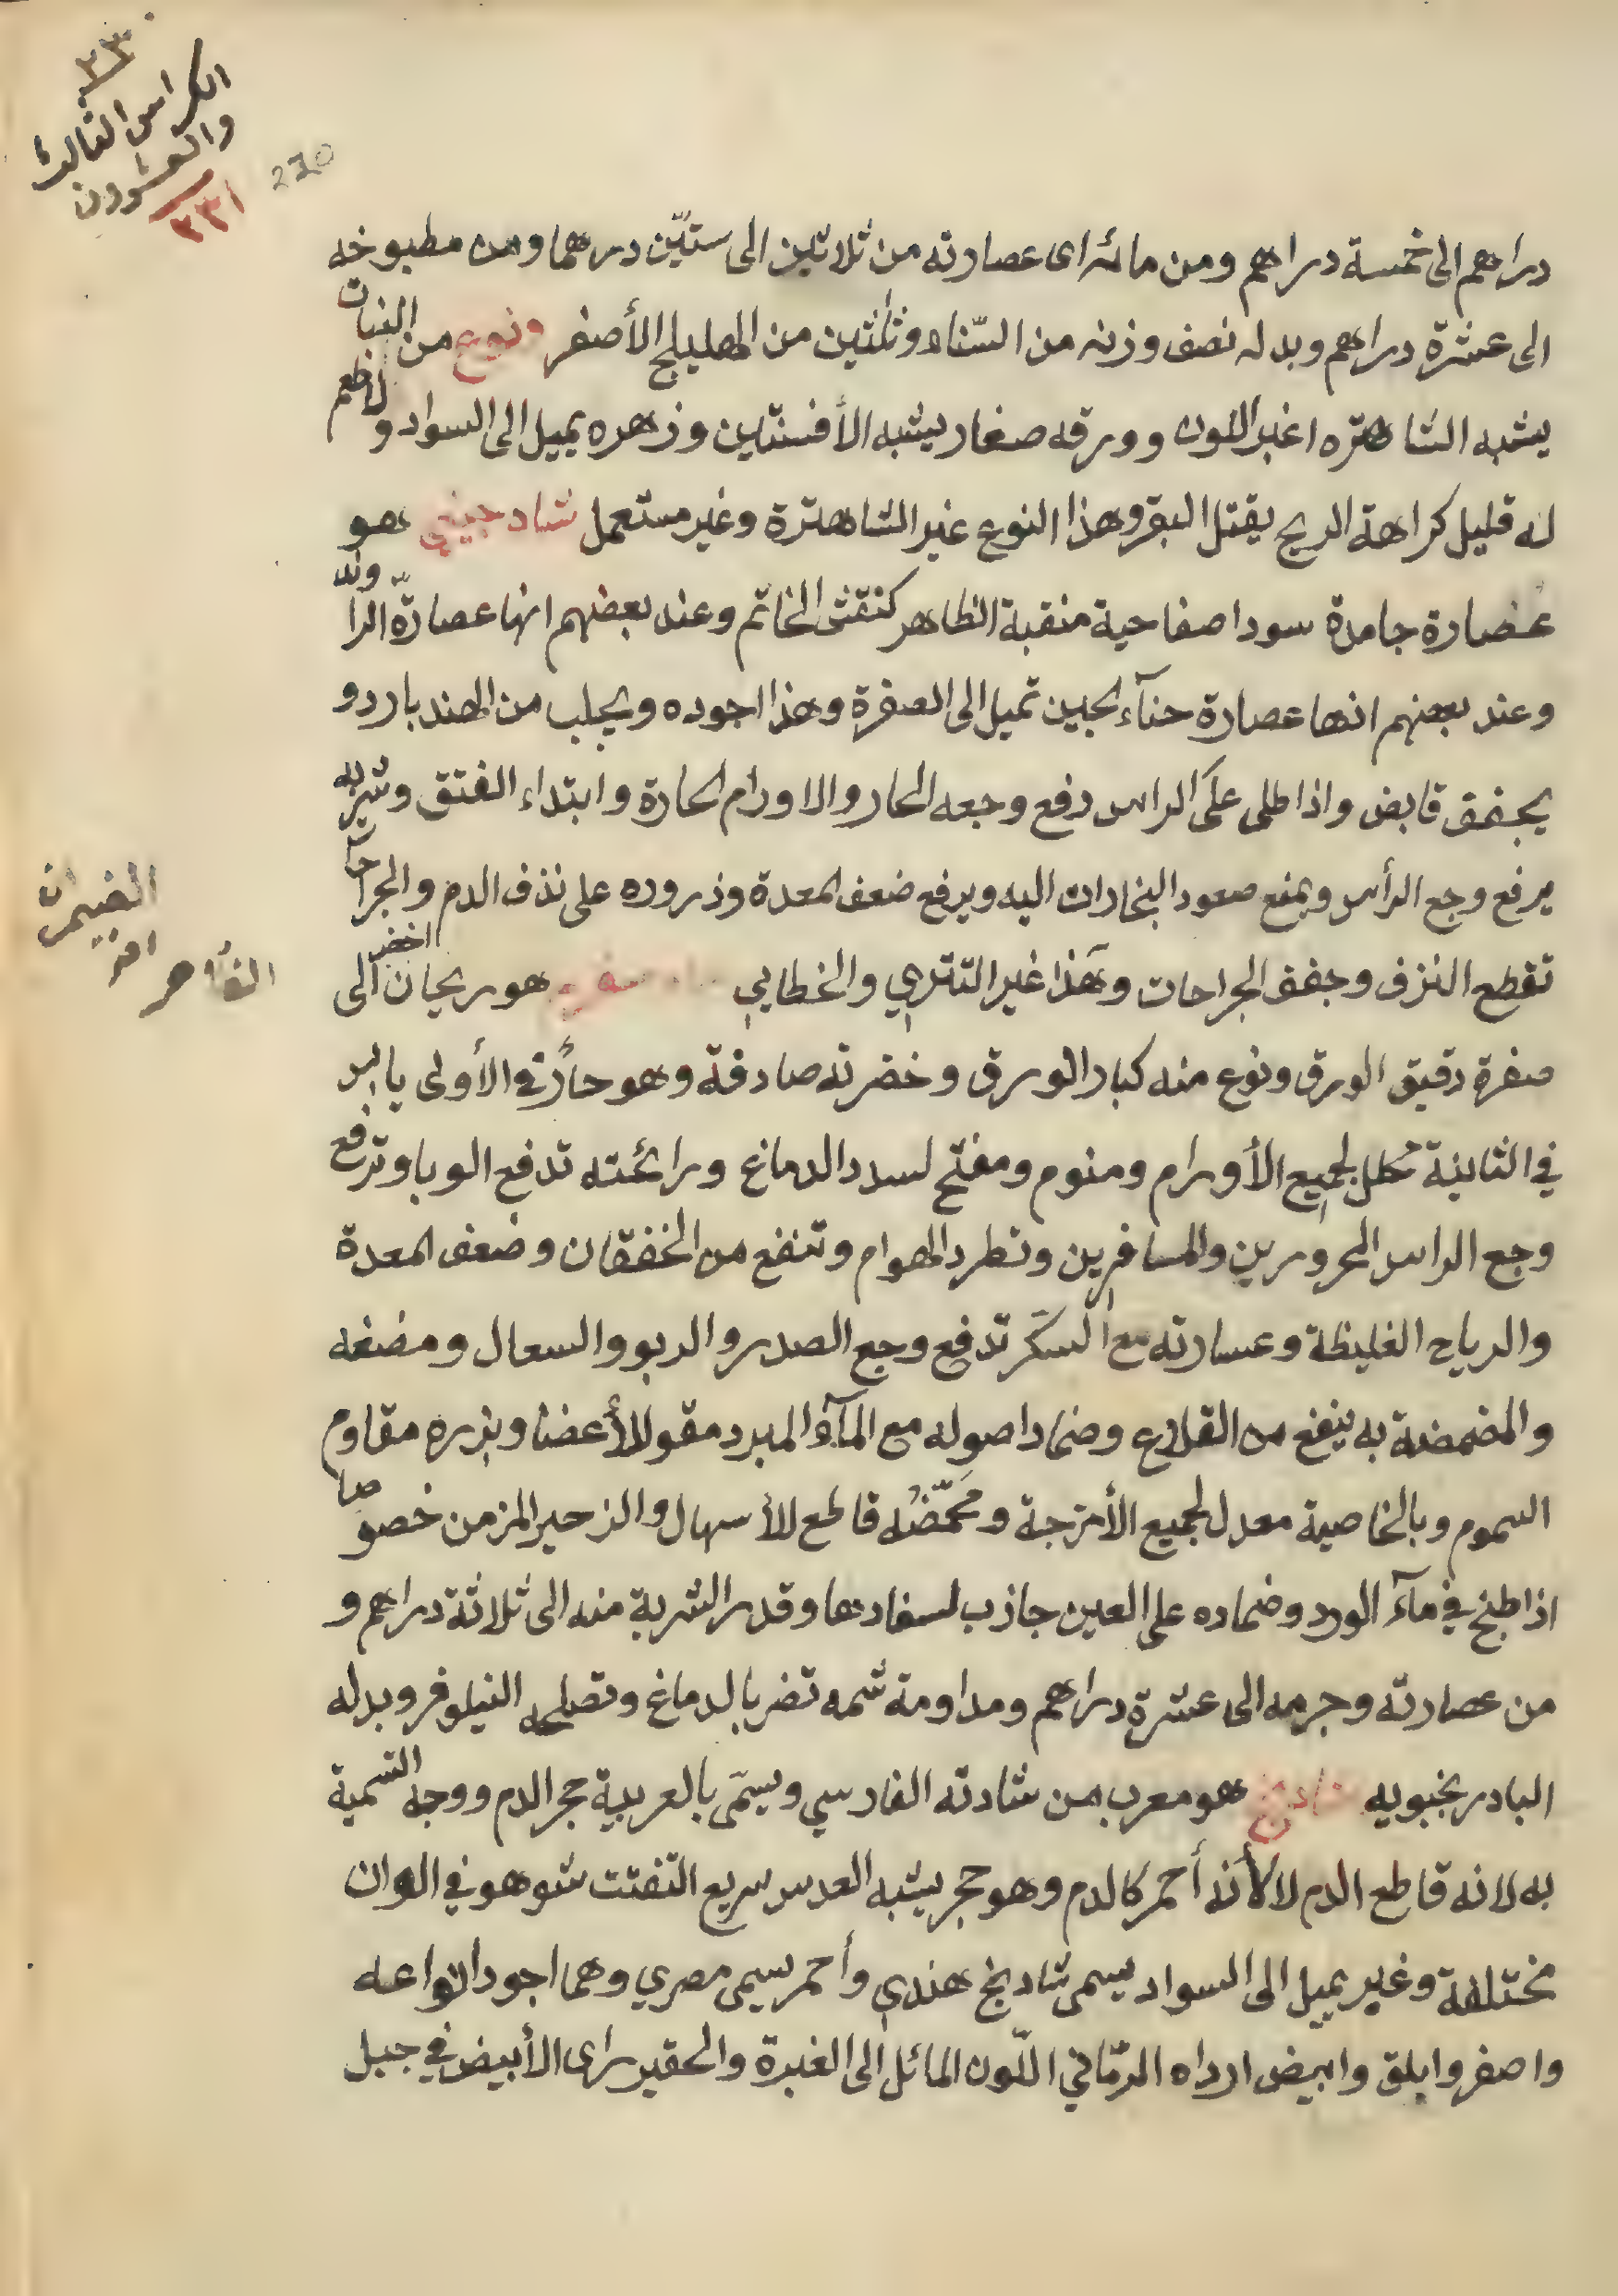 ٢٣
الكراس الثالث
والعشرون
٢٣١
230
دراهم الى خمسة دراهم ومن مائه اى عصارته من ثلاثين الى ستيّن درهما ومن مطبوخه
الى عشرة دراهم وبدله نصف وزنه من السّناء وثلثين من الهليلج الأصفر ونوع من النبات
يشبه الشاهتره اغبر اللون وورقه صغار يشبه الأفسنتين وزهره يميل الى السواد ولا طعم
له قليل كراهة الريح يقتل البقر وهذا النوع غير الشاهترة وغير مستعمل شاد جيني هو
عصارة جامدة سودا صفاحية منقبة الظاهر كنقش الخاتم وعند بعضهم انها عصارة الراوند
وعند بعضهم انها عصارة حنآء لجين تميل الى الصفرة وهذا اجوده ويجلب من الهند بارد و
يجفف قابض واذا طلى على الراس دفع وجعه الحار والاورام الحارة وابتداء الفتق وشربه
يرفع وجع الرأس ويمنع صعود البخارات اليه ويرفع ضعف المعدة وذروره على نذف الدم والجراحات
تقطع النزف وجفف الجراحات وهذا غير التتري والخطايي هو ريحان اخضر الى
صفرة دقيق الورق ونوع منه كبار الورق وخضرته صادقة وهو حارٌ في الأولى يابس
في الثانية محلل لجميع الأورام ومنوم ومفتح لسدد الدماغ ورائحته تدفع الوبا وترفع
وجع الراس المحرورين والمسافرين وتطرد الهوام وتنفع من الخفقان وضعف المعدة
والرياح الغليظة وعسارته مع السكّر تدفع وجع الصدر والربو والسعال ومضغه
والمضمضة به ينفع من القلاع وضماد اصوله مع المآء المبرد مقو للأعضا وبزره مقاوم
السموم وبالخاصية معدل لجميع الأمزجة ومحمّضُه قاطع للأسهال والزحير المزمن خصوصا
اذا طبخ في مآء الورد وضماده على العين جاذب لسفادها وقدر الشربة منه الى ثلاثة دراهم و
من عصارته وجرمه الى عشرة دراهم ومداومة شمه تضر بالدماغ وتصلحه النيلوفر وبدله
البادرنجبويه شادنج هو معرب من شادنه الفارسي ويسمّى بالعربية حجر الدم ووجه التسمية
به لانه قاطع الدم لا لأنه أحمر كالدم وهو حجر يشبه العدس سريع التفتت شوهو في الوان
مختلفة وغير يميل الى السواد يسمى شادنج هندي وأحمر يسمى مصري وهما اجود انواعه
واصفر وابلق وابيض ارداه الرمّاني اللّون المائل الى الغبرة والحقير راى الأبيض في جبل